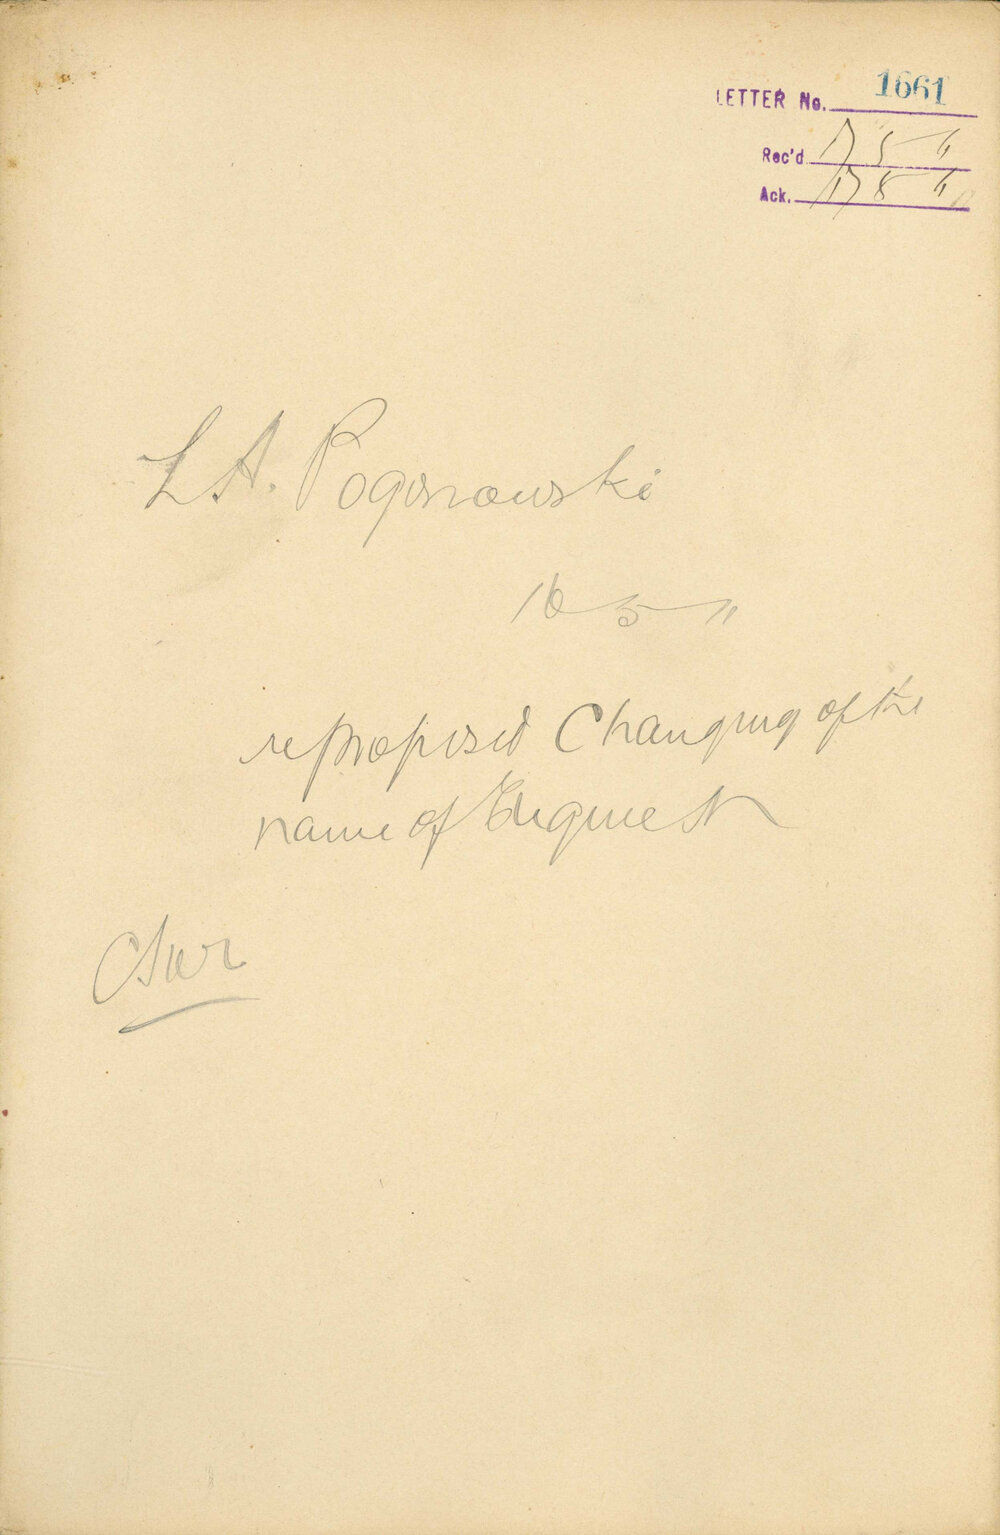 LETTER No. 1661
Rec'd 17 5 11
Ack. 17 5 11
L A. Pogonowski
16 5 11
re proposed Changing of the
name of